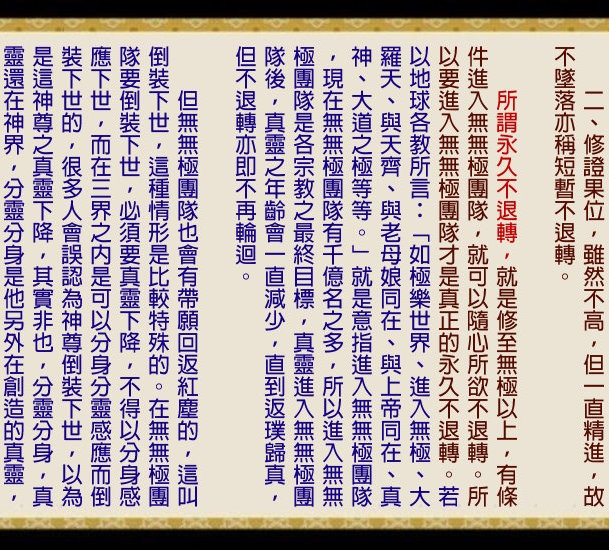 二、修證果位，雖然不高，但一直精進，故
不墜落亦稱短暫不退轉。
所謂永久不退轉，就是修至無極以上，有條
件進入無無極團隊，就可以隨心所欲不退轉。所
以要進入無無極團隊才是真正的永久不退轉。若
以地球各教所言：「如極樂世界、進入無極、大
羅天、與天齊、與老母娘同在、與上帝同在、真
神、大道之極等等。」就是意指進入無無極團隊
，現在無無極團隊有千億名之多，所以進入無無
極團隊是各宗教之最終目標，真靈進入無無極團
隊後，真靈之年齡會一直減少，直到返璞歸真，
但不退轉亦即不再輪迴。
但無無極團隊也會有帶願回返紅塵的，這叫
倒裝下世，這種情形是比較特殊的。在無無極團
隊要倒裝下世，必須要真靈下降，不得以分身感
應下世，而在三界之內是可以分身分靈感應而倒
裝下世的，很多人會誤認為神尊倒裝下世，以為
是這神尊之真靈下降，其實非也，分靈分身，真
靈還在神界，分靈分身是他另外在創造的真靈，